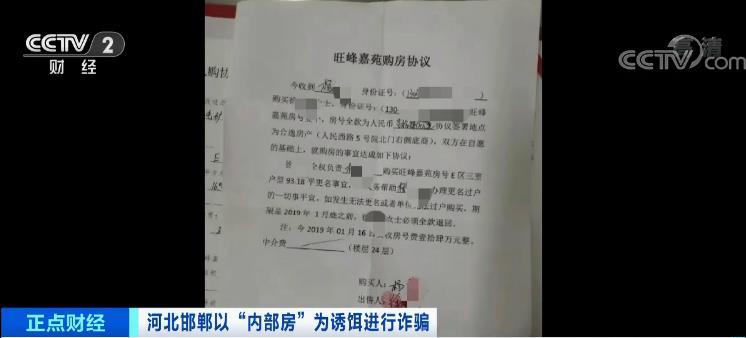 CCTV 2
财经
高清
CCTV.com
购协
旺峰嘉苑购房协议
今收到 身份证号:( )
购买 身份证号:(130 旺峰
嘉苑房号 房号全款为人民币 协议签署地点
为合逸房产(人民西路5号院北门右侧底商),双方在自愿
的基础上,就购房的事宜达成如下协议:
全权负责 购买旺峰嘉苑房号E区三室
户型 93.18 平更名事宜, 务帮助 办理更名过户
的一切事宜,如发生无法更名或者单位 过户购买,期
限是 2019 年 1 月底之前, 女士必须全款退回。
注:今 2019 年 01 月 16 收房号费壹拾肆万元整,
中介费 (楼层 24 层)
购买人:
出售人:
正点财经
河北邯郸以“内部房”为诱饵进行诈骗